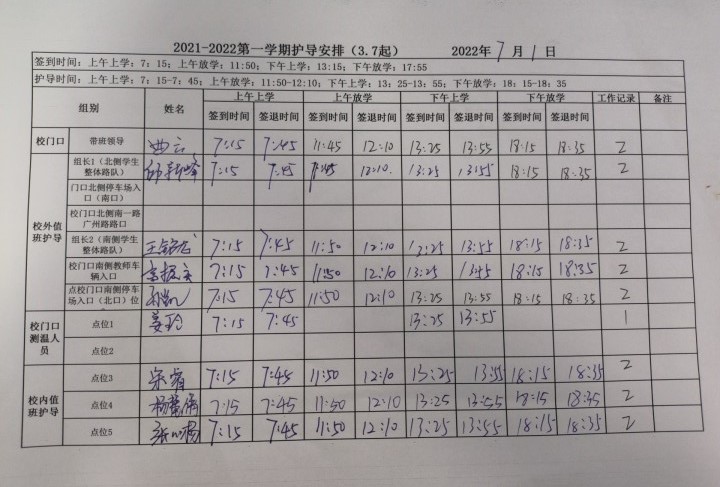 2021-2022第一学期护导安排（3.7起） 2022年 7月 1日
签到时间：上午上学：7：15；上午放学：11:50；下午上学：13:15；下午放学：17:55
护导时间：上午上学：7：15-7：45；上午放学：11:50-12:10；下午上学：13：25-13：55；下午放学：18：15-18：35
组别 姓名 上午上学 上午放学 下午上学 下午放学 工作记录 备注
签到时间 签退时间 签到时间 签退时间 签到时间 签退时间 签到时间 签退时间
校门口 带班领导 7:15 7:45 11:45 12:10 13:25 13:55 18:15 18:35 2
校外值班护导
组长1（北侧学生整体路队） 7:15 7:45 12:10 13:25 13:55 18:15 18:35 2
门口北侧停车场入口（南口）
校门口北侧南一路广州路路口
组长2（南侧学生整体路队） 7:15 7:45 11:50 12:10 13:25 13:55 18:15 18:35 2
校门口南侧教师车辆入口 7:15 7:45 11:50 12:10 13:25 1345 18:15 18:35 2
点校门口南侧停车场入口（北口）位 7:15 7:45 11:50 12:10 13:25 13:55 18:15 18:35 2
校门口测温人员
点位1 姜玲 7:15 7:45 13:25 13:55 1
点位2
校内值班护导
点位3 宋睿 7:15 7:45 11:50 12:10 13:25 13:55 18:15 18:35 2
点位4 7:15 7:45 11:50 12:10 13:25 13:55 18:15 18:35 2
点位5 7:15 7:45 11:50 12:10 13:25 13:55 18:15 18:35 2